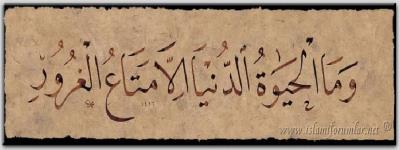 وَمَا الْحَيٰوةُ الدُّنْيَا اِلَّا مَتَاعُ الْغُرُورِ
www.islamiforumlar.net